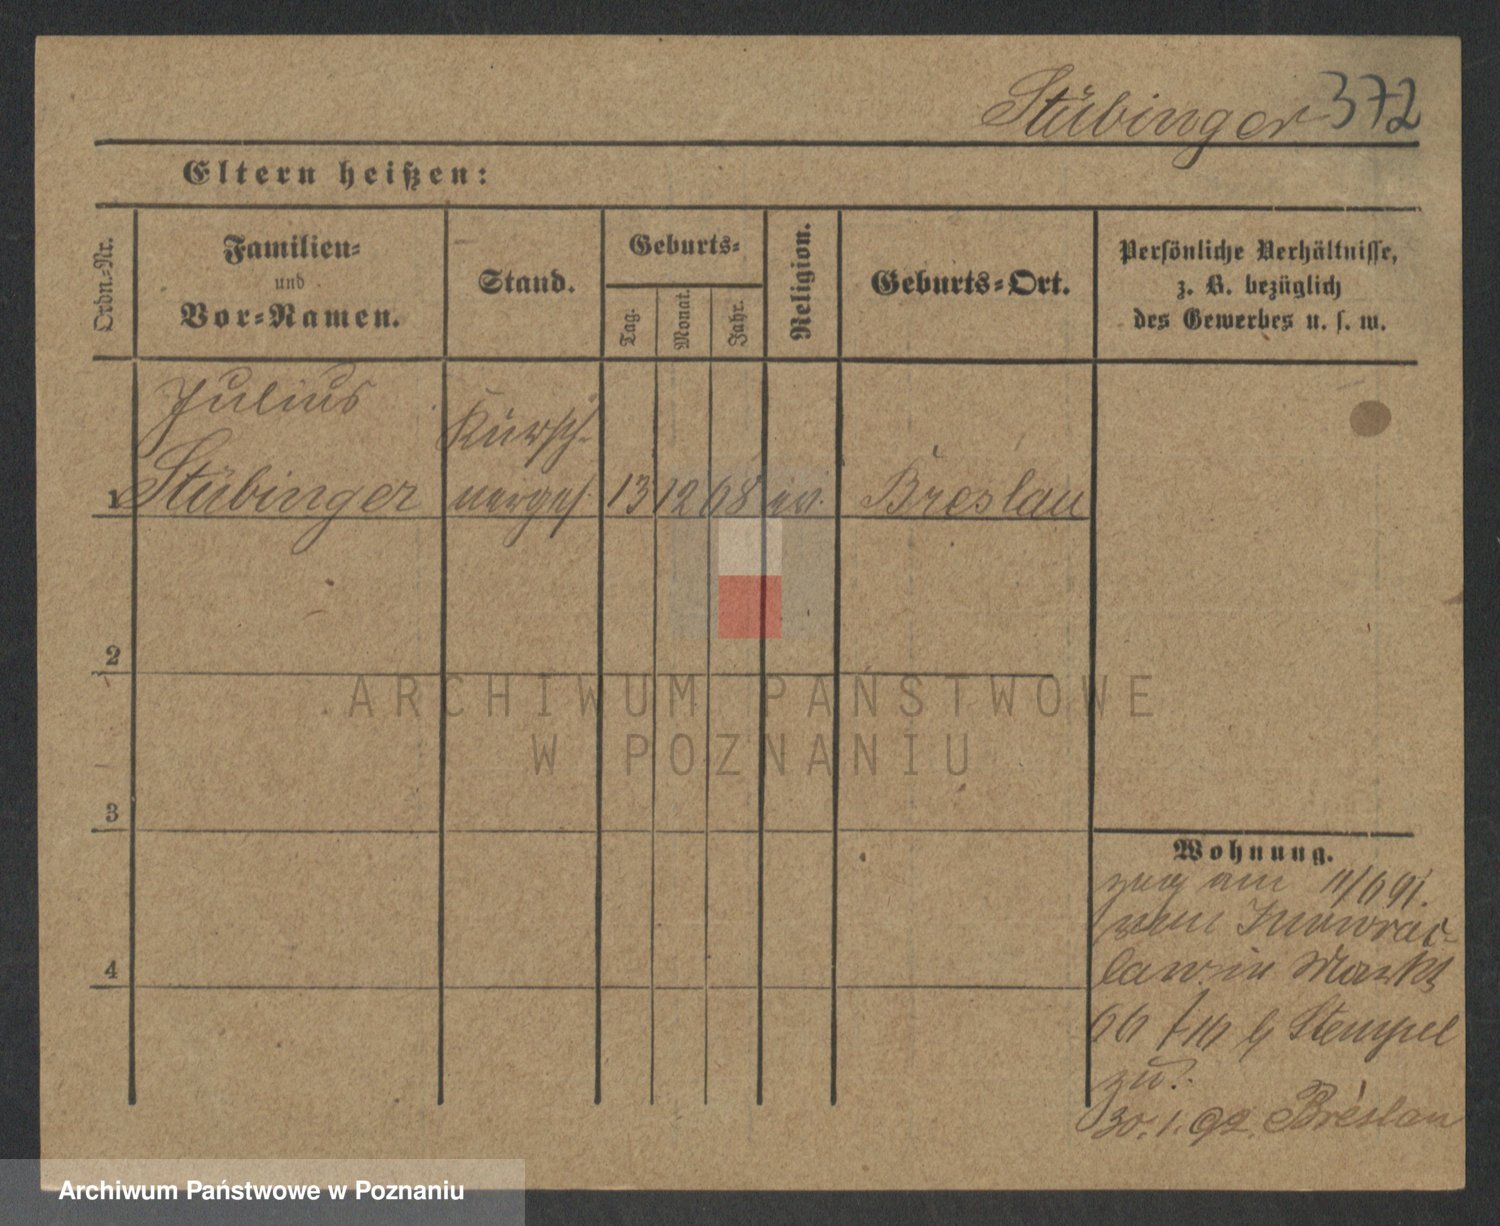 Stübinger 372
Eltern heißen:
Ordn.-Nr.
Familien-
und
Vor-Namen.
Stand.
Geburts-
Tag.
Monat.
Jahr.
Religion.
Geburts-Ort.
Persönliche Verhältnisse,
z. B. bezüglich
des Gewerbes u. s. w.
Julius
Kürsch-
1 Stübinger nerges. 13 12 68 ev. Breslau
2
ARCHIWUM PAŃSTWOWE
W POZNANIU
3
Wohnung.
zug am 11/6 91.
von Inowraz-
law in Markt
66 b Stempel
zu.
4
30.1.92. Breslau
Archiwum Państwowe w Poznaniu